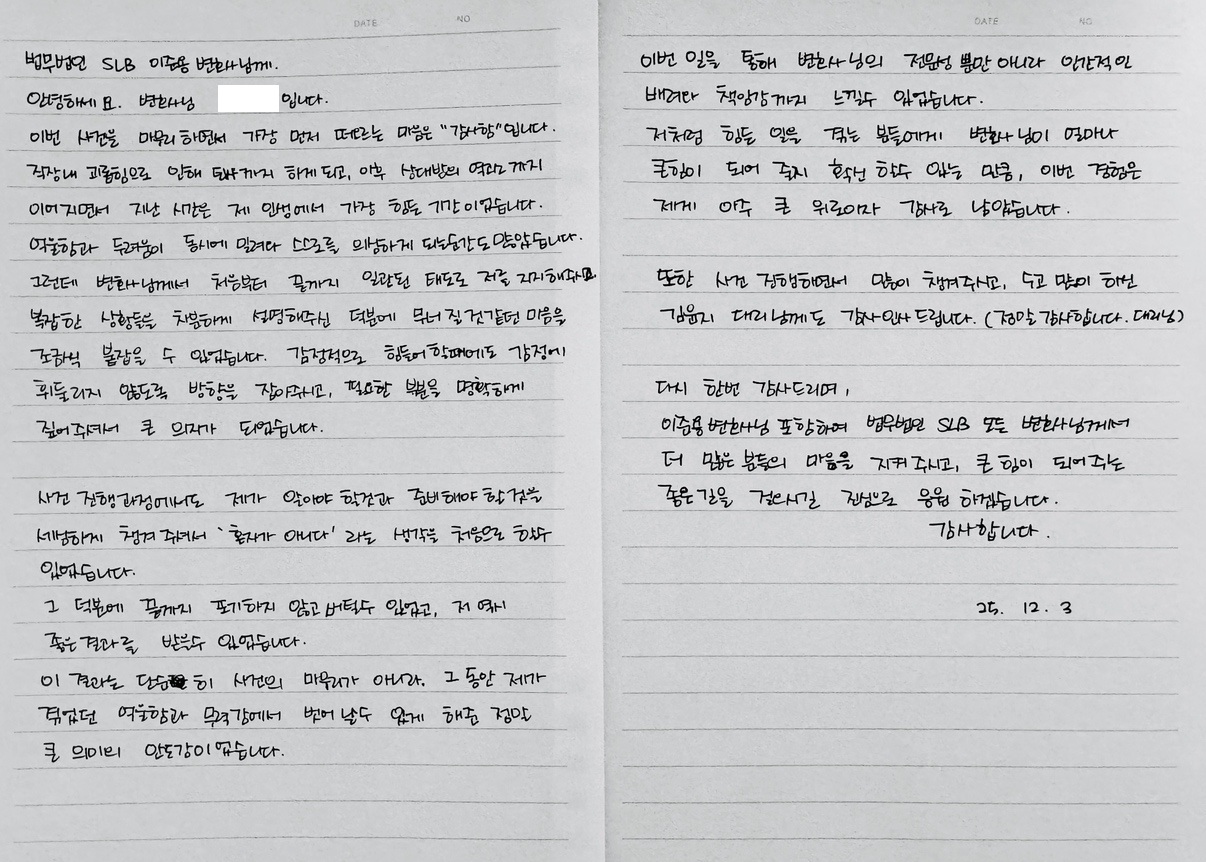 DATE NO
법무법인 SLB 이준용 변호사님께.
안녕하세요. 변호사님 입니다.
이번 사건을 마무리하면서 가장 먼저 떠오르는 마음은 "감사함"입니다.
직장내 괴롭힘으로 인해 퇴사까지 하게 되고, 이후 상대방의 역고소까지
이어지면서 지난 시간은 제 인생에서 가장 힘든 기간이었습니다.
억울함과 두려움이 동시에 밀려와 스스로를 의심하게 되는순간도 많았습니다.
그런데 변호사님께서 처음부터 끝까지 일관된 태도로 저를 지지해주시고
복잡한 상황들을 차분하게 설명해주신 덕분에 무너질것같던 마음을
조금씩 붙잡을 수 있었습니다. 감정적으로 힘들어할때에도 감정에
휘둘리지 않도록 방향을 잡아주시고, 필요한 부분을 명확하게
짚어주셔서 큰 의지가 되었습니다.
사건 진행과정에서도 제가 알아야 할것과 준비해야 할 것을
세심하게 챙겨주셔서 '혼자가 아니다' 라는 생각을 처음으로 할수
있었습니다.
그 덕분에 끝까지 포기하지 않고 버틸수 있었고, 저 역시
좋은결과를 받을수 있었습니다.
이 결과는 단순히 사건의 마무리가 아니라. 그동안 제가
겪었던 억울함과 무력감에서 벗어날수 있게 해준 정말
큰 의미의 안도감이었습니다.
DATE NO
이번 일을 통해 변호사님의 전문성 뿐만 아니라 인간적인
배려와 책임감까지 느낄수 있었습니다.
저처럼 힘든 일을 겪는 분들에게 변호사님이 얼마나
큰힘이 되어 줄지 확신 할수 있는 만큼, 이번 경험은
제게 아주 큰 위로이자 감사로 남았습니다.
또한 사건 진행하면서 많이 챙겨주시고, 수고 많이 하신
김윤지 대리님께도 감사인사 드립니다. (정말 감사합니다. 대리님)
다시 한번 감사드리며,
이준용변호사님 포함하여 법무법인 SLB 모든 변호사님께서
더 많은 분들의 마음을 지켜주시고, 큰 힘이 되어주는
좋은길을 걸으시길 진심으로 응원 하겠습니다.
감사합니다.
25. 12. 3